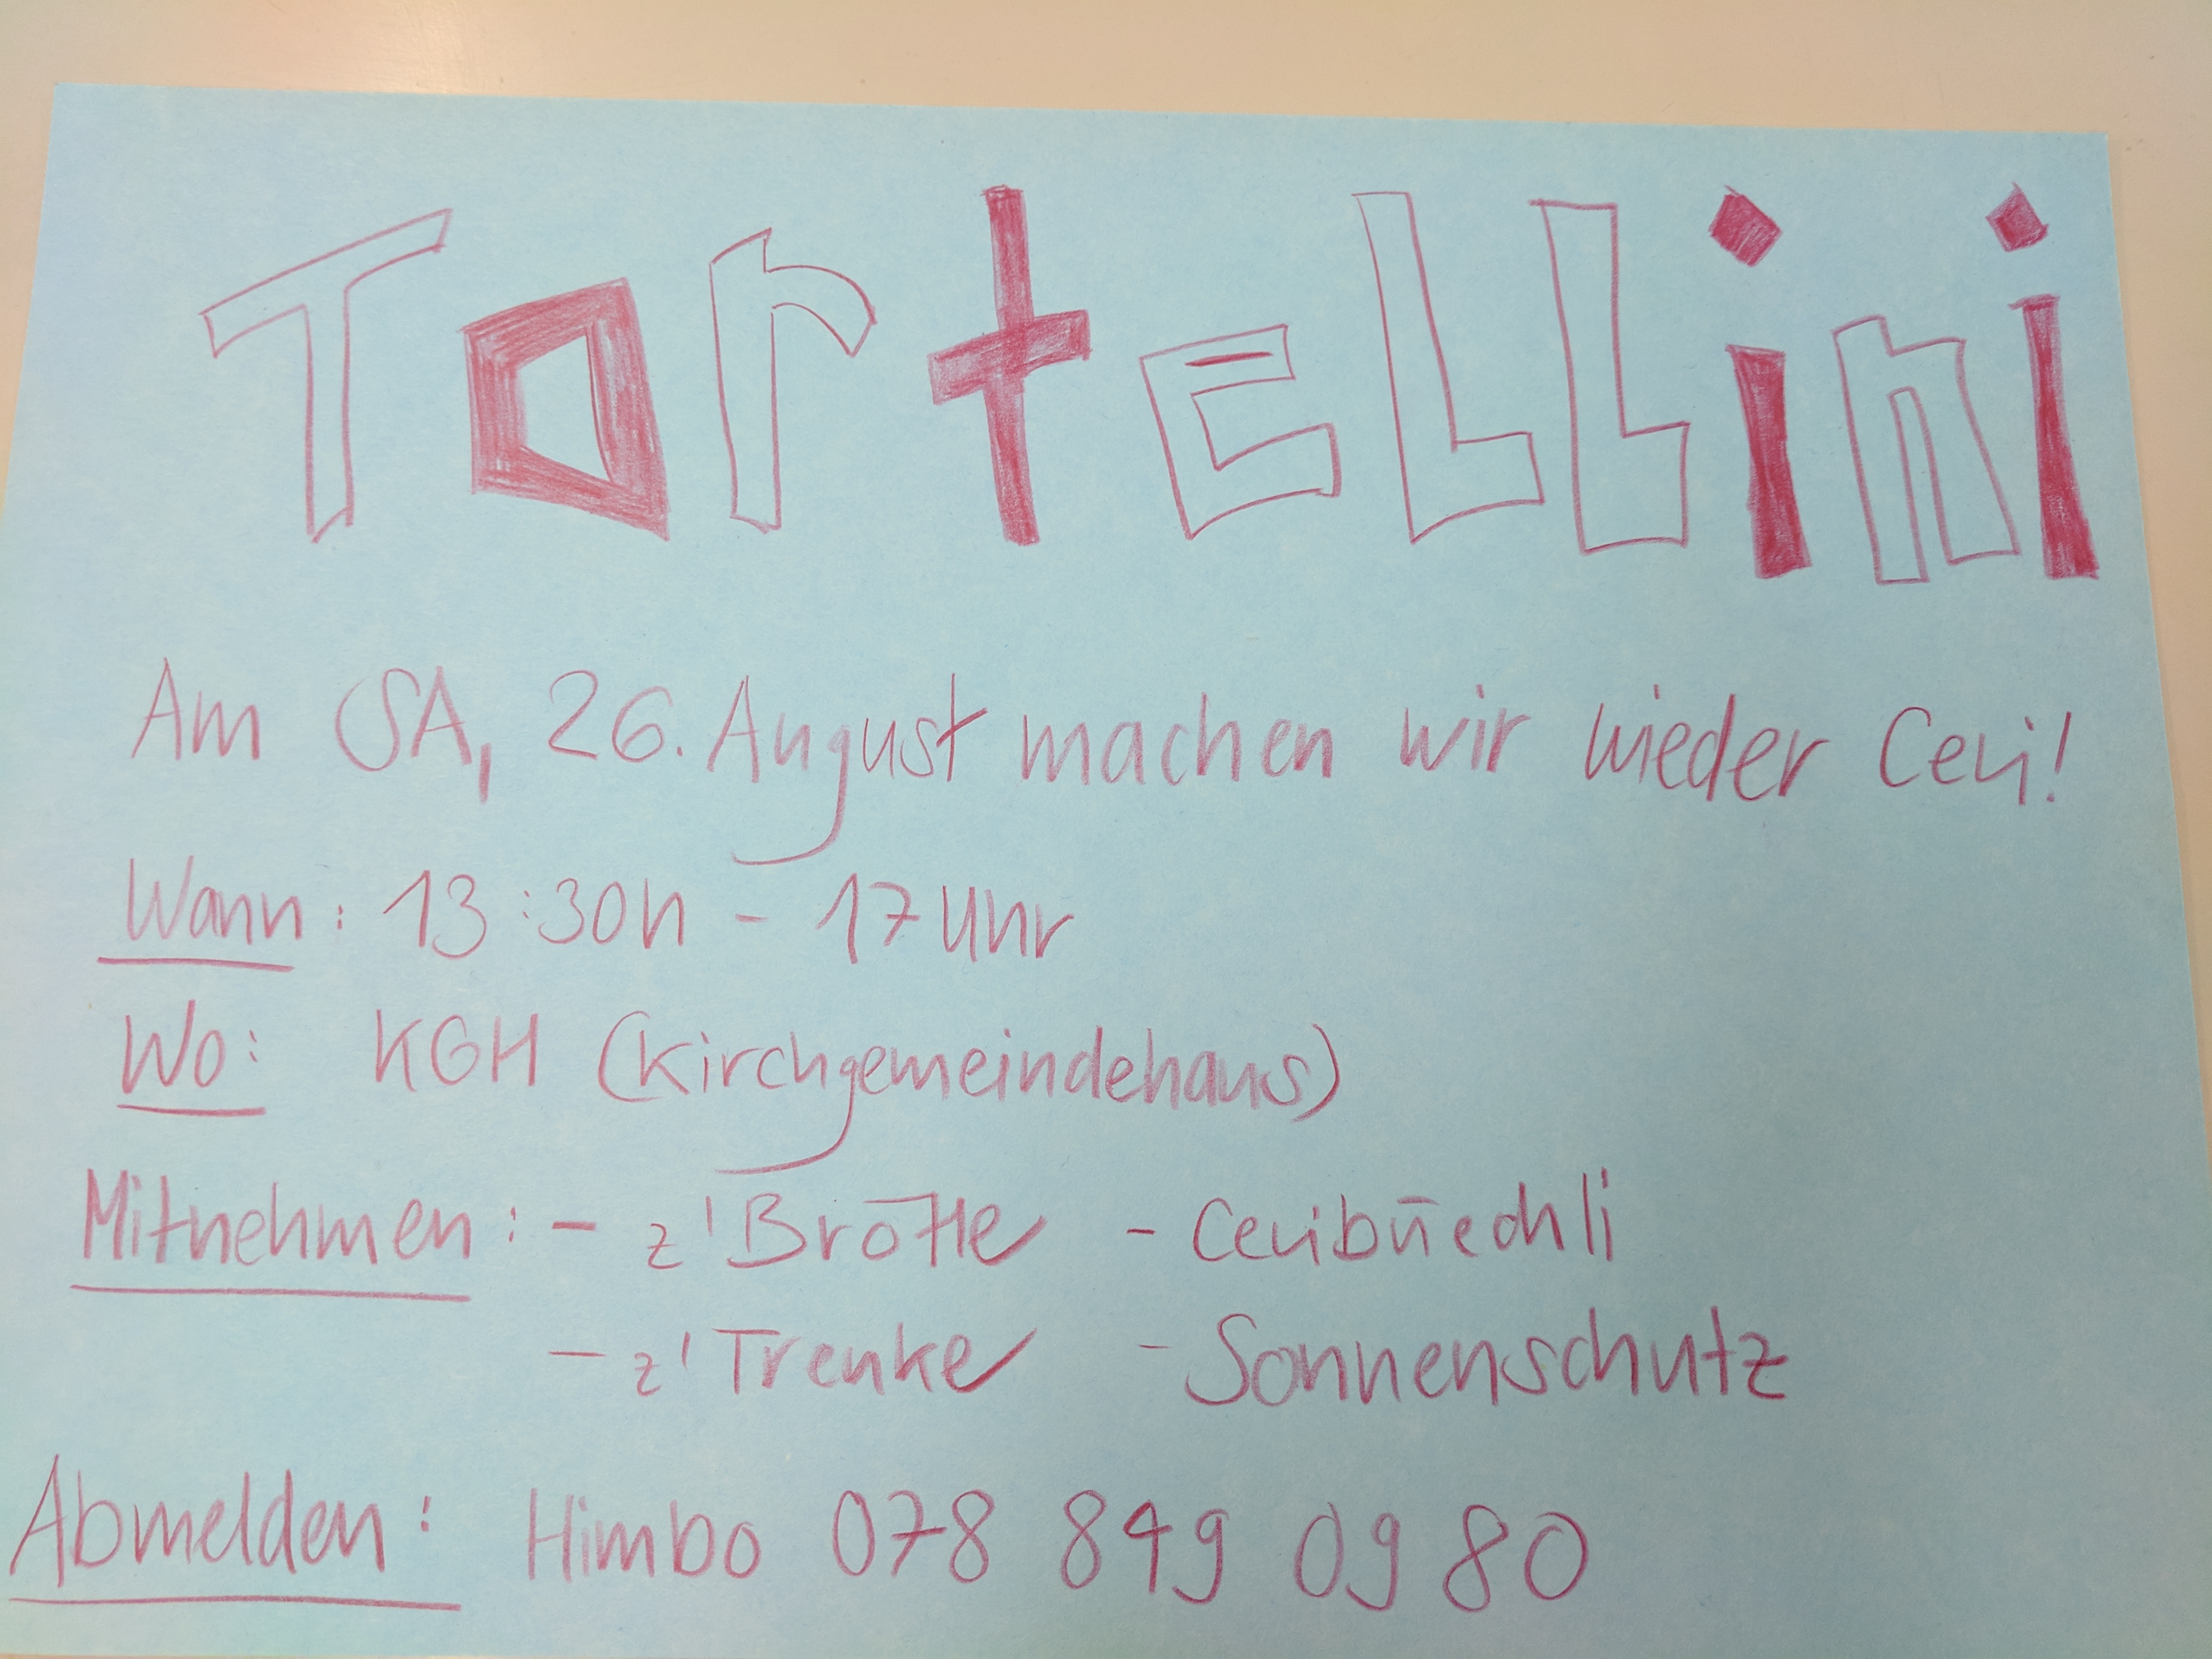 Tortellini
Am SA, 26. August machen wir wieder Cevi!
Wann: 13:30h - 17 Uhr
Wo: KGH (Kirchgemeindehaus)
Mitnehmen: - z'Brötle - Cevibüechli
- z'Trenke - Sonnenschutz
Abmelden: Himbo 078 849 09 80